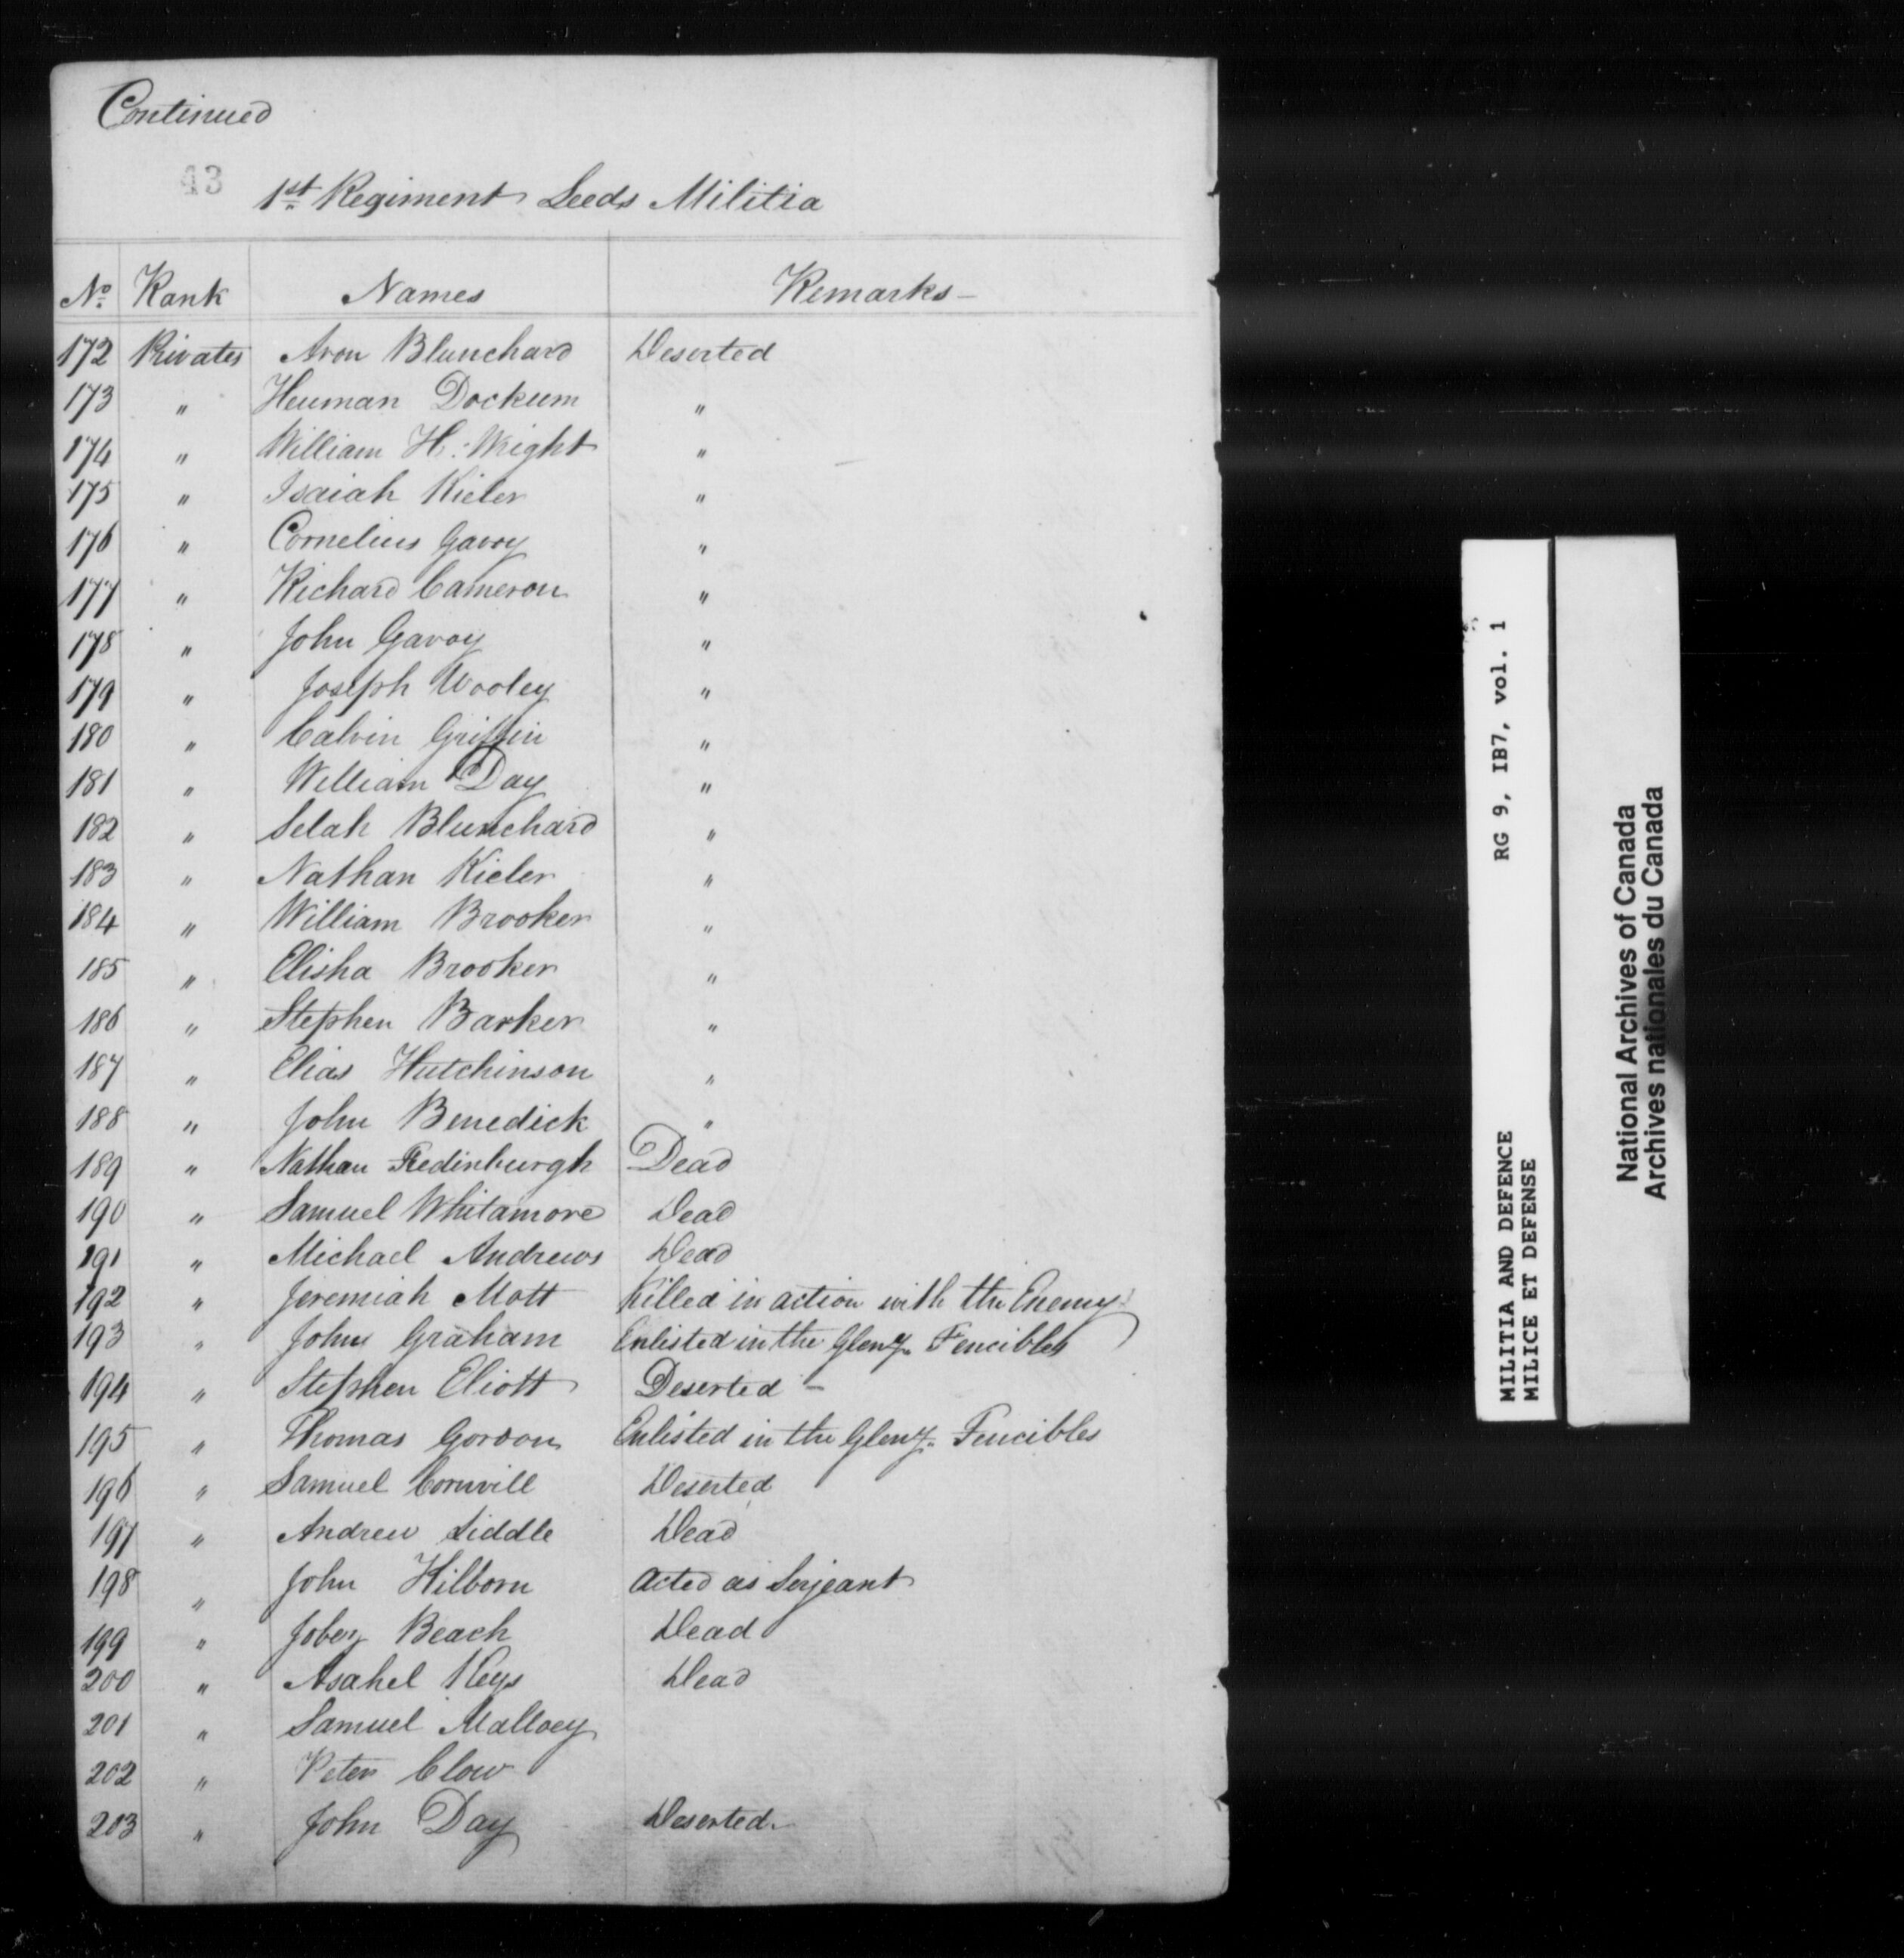 Continued
43
1st Regiment Leeds Militia
No. Rank Names Remarks -
172 Privates Aron Blunchard Deserted
173 " Heuman Dockum "
174 " William H. Wright "
175 " Isaiah Kieler "
176 " Cornelius Gavoy "
177 " Richard Cameron "
178 " John Gavoy "
179 " Joseph Wooley "
180 " Calvin Griffin "
181 " William Day "
182 " Selah Blunchard "
183 " Nathan Kieler "
184 " William Brooker "
185 " Elisha Brooker "
186 " Stephen Barker "
187 " Elias Hutchinson "
188 " John Benedick "
189 " Nathan Redinburgh Dead
190 " Samuel Whitamore Dead
191 " Michael Andrews Dead
192 " Jeremiah Mott Killed in action with the Enemy
193 " John Graham Enlisted in the Gleny. Fencibles
194 " Stephen Eliott Deserted -
195 " Thomas Gordon Enlisted in the Gleny. Fencibles
196 " Samuel Cornvill Deserted
197 " Andrew Liddle Dead
198 " John Hilborn Acted as Serjeant
199 " Beach Dead
200 " Asahel Keys Dead
201 " Samuel Malloey
202 " Peter Clow
203 " John Day Deserted.
MILITIA AND DEFENCE RG 9, IB7, vol. 1
MILICE ET DEFENSE
National Archives of Canada
Archives nationales du Canada